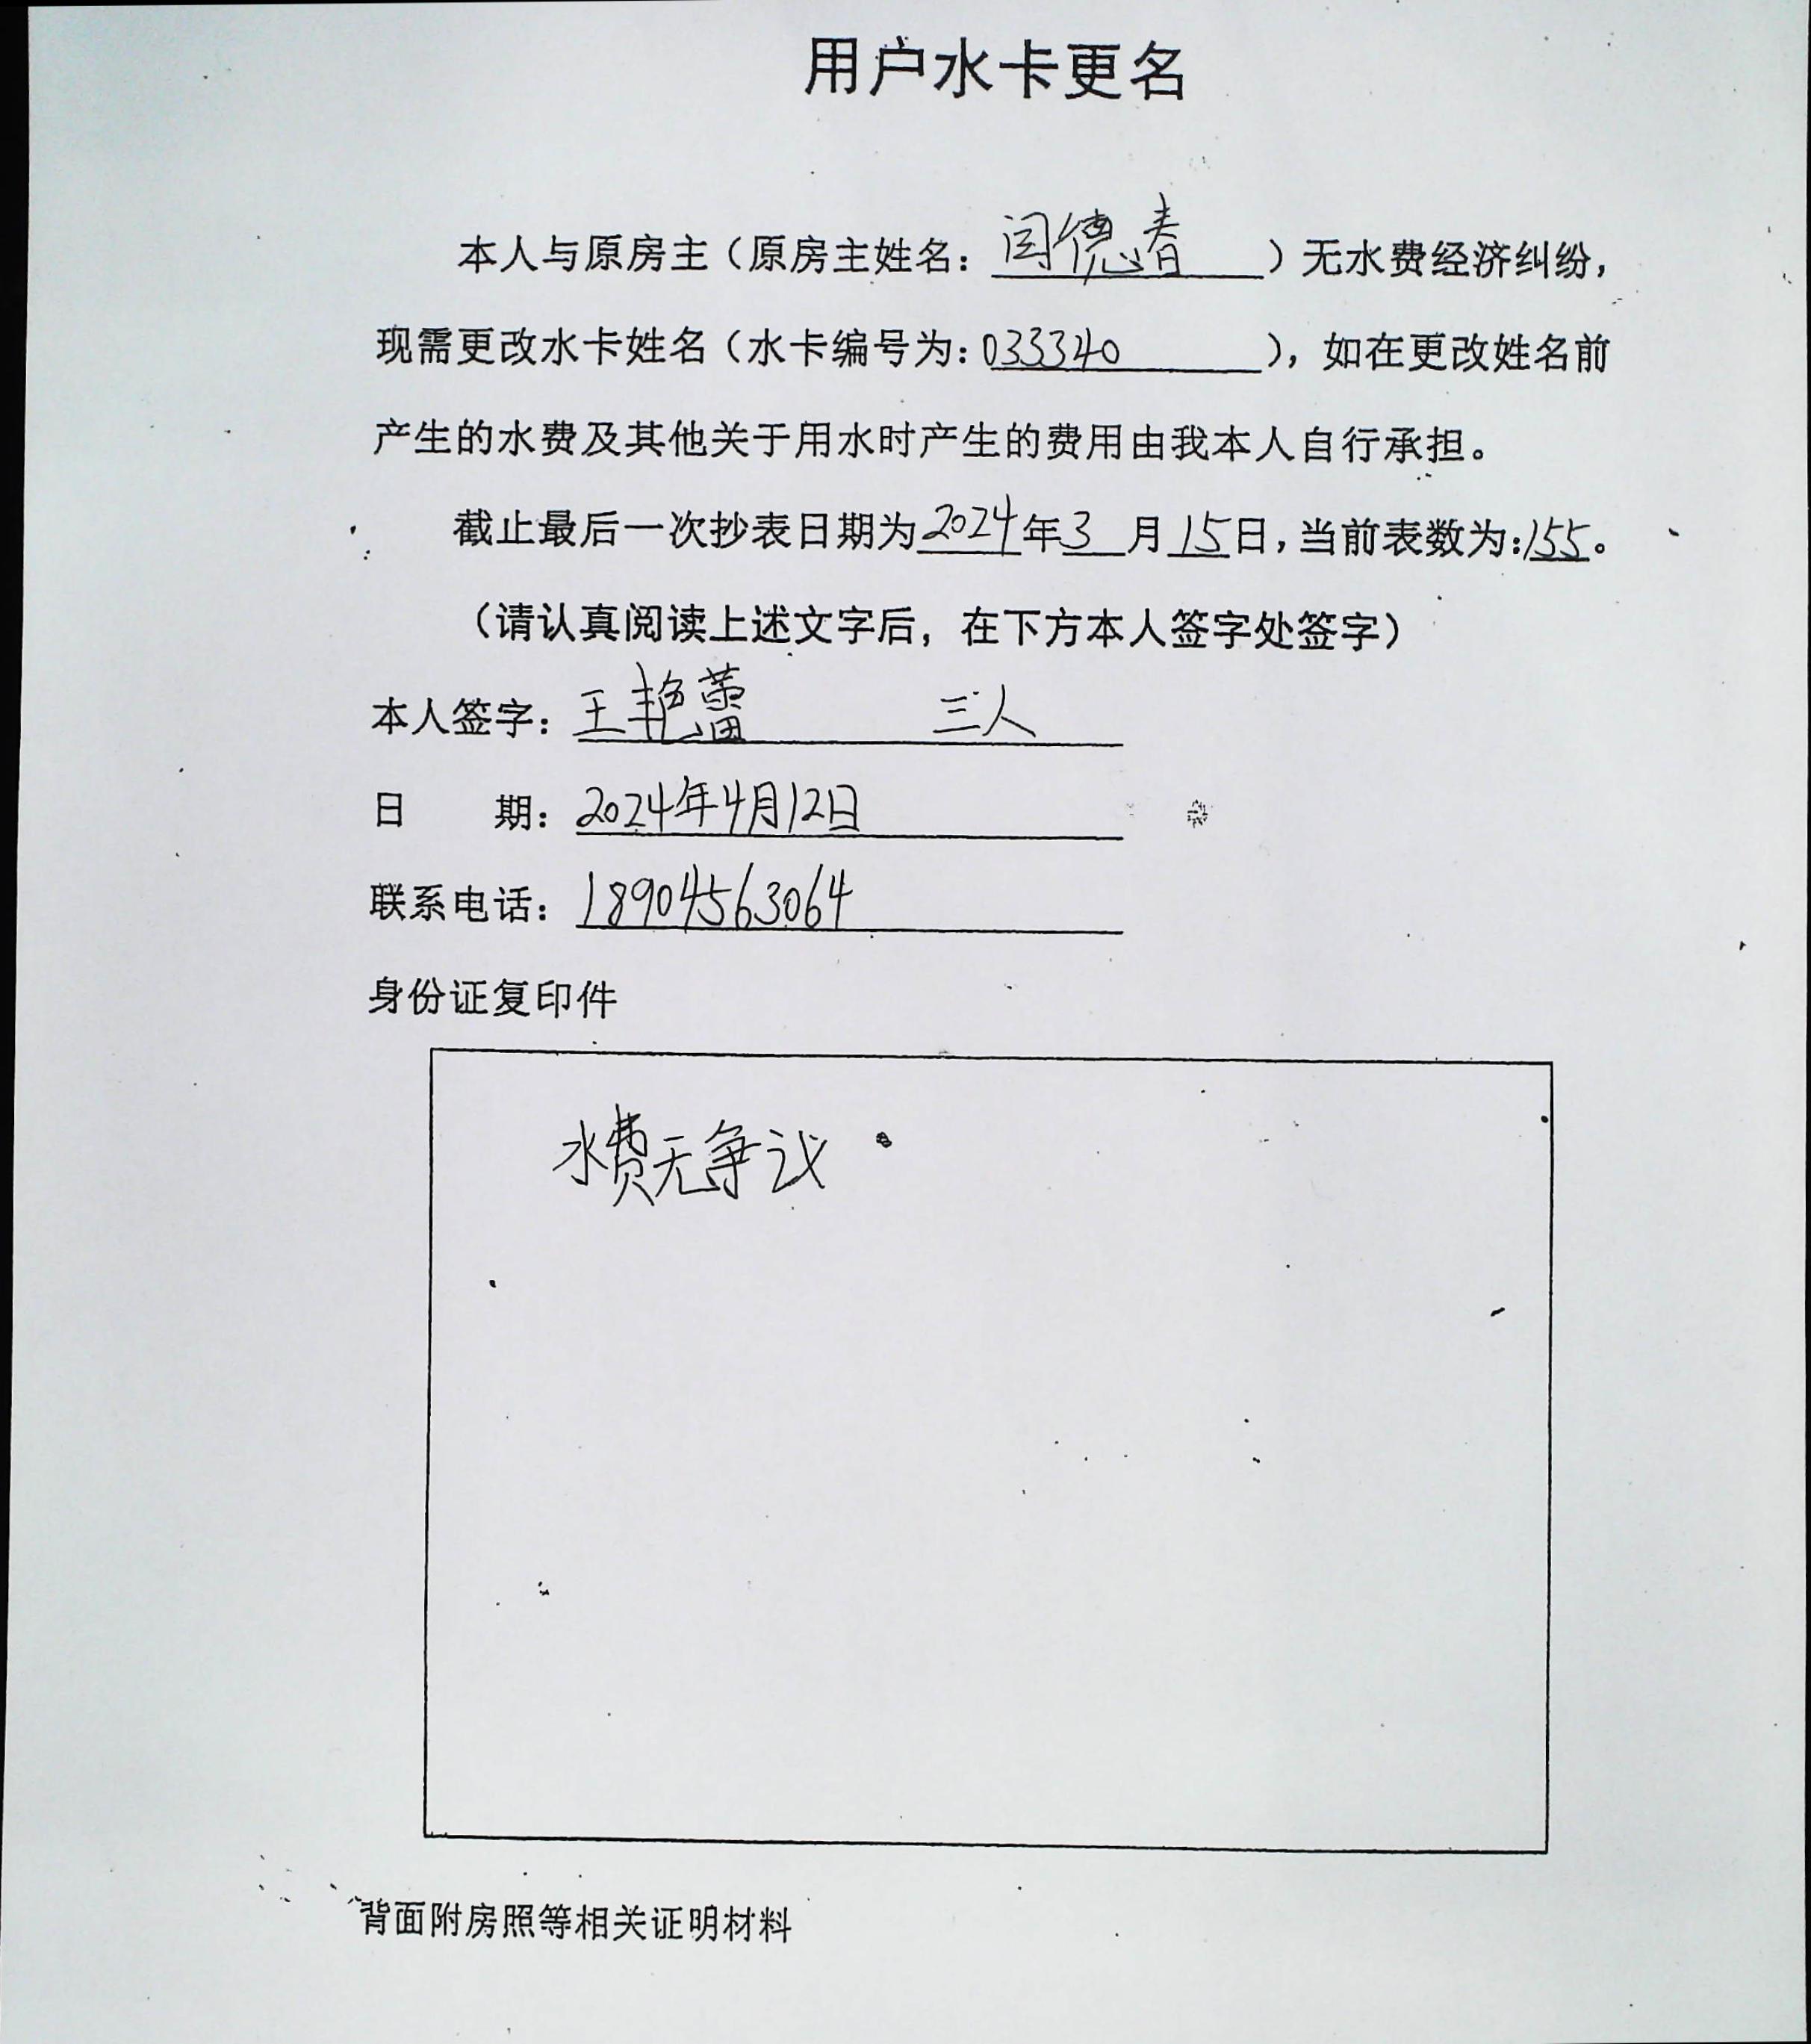 用户水卡更名
本人与原房主（原房主姓名：闫德春）无水费经济纠纷，
现需更改水卡姓名（水卡编号为：033340），如在更改姓名前
产生的水费及其他关于用水时产生的费用由我本人自行承担。
截止最后一次抄表日期为2024年3月15日，当前表数为：155。
（请认真阅读上述文字后，在下方本人签字处签字）
本人签字：王艳蕾 三人
日 期：2024年4月12日
联系电话：18904563064
身份证复印件
水费无争议
背面附房照等相关证明材料